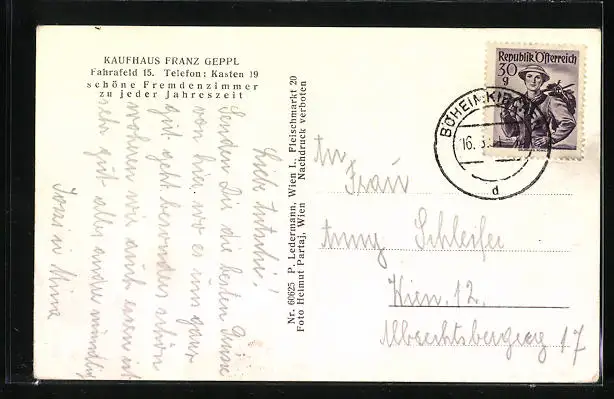 KAUFHAUS FRANZ GEPPL
Fahrafeld 15. Telefon: Kasten 19
schöne Fremdenzimmer
zu jeder Jahreszeit
Liebe
Senden Dir die besten Grüsse
von hier wo es uns ganz
gut geht besonders schön
wohnen wir auch essen ist
sehr gut alles andre mündlich
Mina
Nr. 60625 P. Ledermann, Wien I., Fleischmarkt 20
Foto Helmut Partaj, Wien Nachdruck verboten
Republik Österreich
30
g
BÖHEIMKIRCHEN
16.
d
An
Frau
Schleifer
Wien 12.
Albrechtsbergerg 17